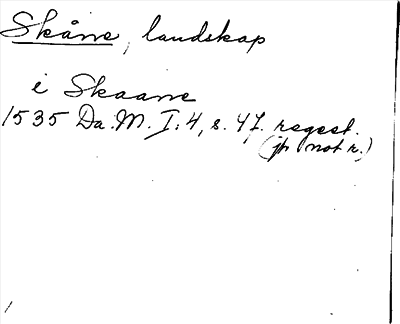 Skåne, landskap
i Skaane
1535 Da. M. I:4, s. 47. regest.
(jfr not r.)